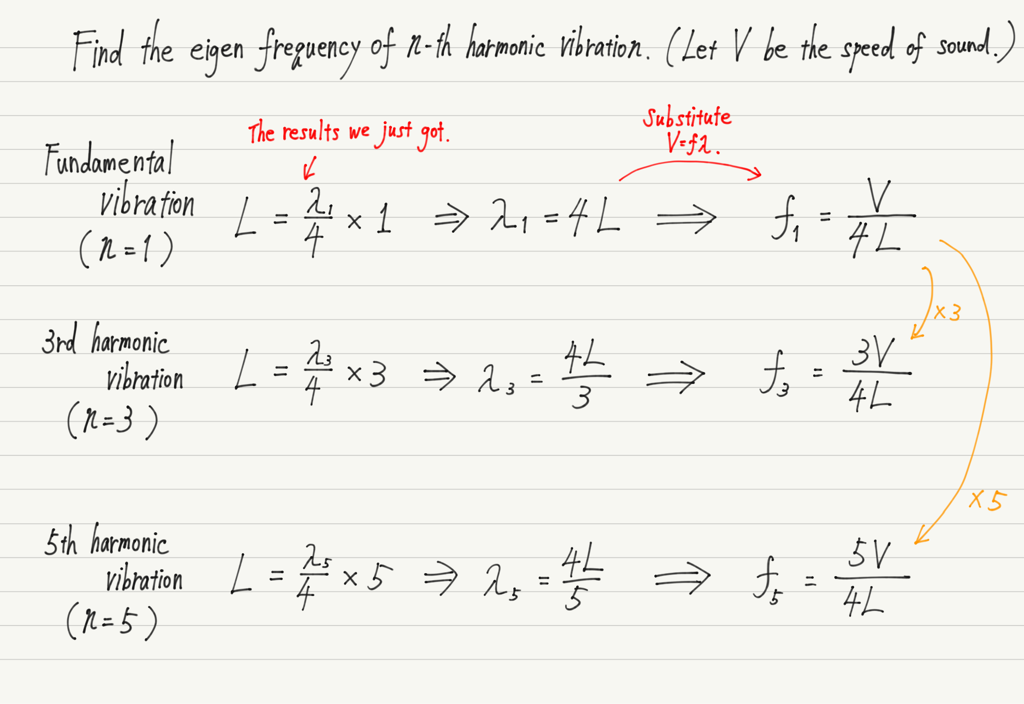 Find the eigen frequency of n-th harmonic vibration. (Let V be the speed of sound.)
The results we just got.
Substitute
V=fλ.
Fundamental
vibration
(n=1)
L = λ₁/4 × 1 ⇒ λ₁ = 4L ⟹ f₁ = V/4L
×3
3rd harmonic
vibration
(n=3)
L = λ₃/4 × 3 ⇒ λ₃ = 4L/3 ⟹ f₃ = 3V/4L
×5
5th harmonic
vibration
(n=5)
L = λ₅/4 × 5 ⇒ λ₅ = 4L/5 ⟹ f₅ = 5V/4L